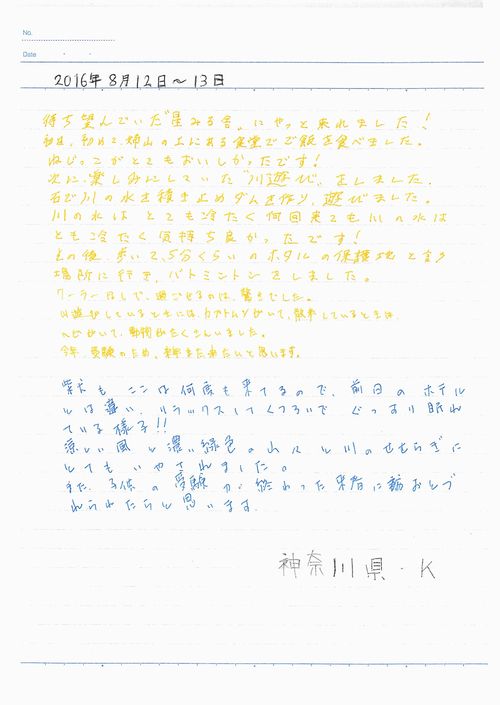 No.
Date
2016年 8月 12日～13日
待ち望んでいた"星みる舎"にやっと来れました！
初めて、山の上にある食堂でご飯を食べました。
ねじっこがとてもおいしかったです！
次に、楽しみにしていた"川遊び"をしました。
石で川の水を積き止めダムを作り、遊びました。
川の水は とても冷たく何回来ても川の水は
とも冷たく気持ち良かったです！
その後、歩いて2、5分くらいのホタルの保護地と言う
場所に行き、バトミントンをしました。
クーラーはしで、過ごせるのは、驚きでした。
川遊びしているときには、カブトムシがいて、散歩しているときは、
ヘビがいて、動物がたくさんいました。
今年、受験のため、来年また来たいと思います。
も ここは何度も来てるので、前日のホテル
とは違い、リラックスしてくつろいで ぐっすり眠れ
ている様子!!
涼しい風と濃い緑色の山々と川のせせらぎに
とてもいやされました。
また、子供の受験が終わった来春に訪おとづ
れられたらと思います。
神奈川県・K